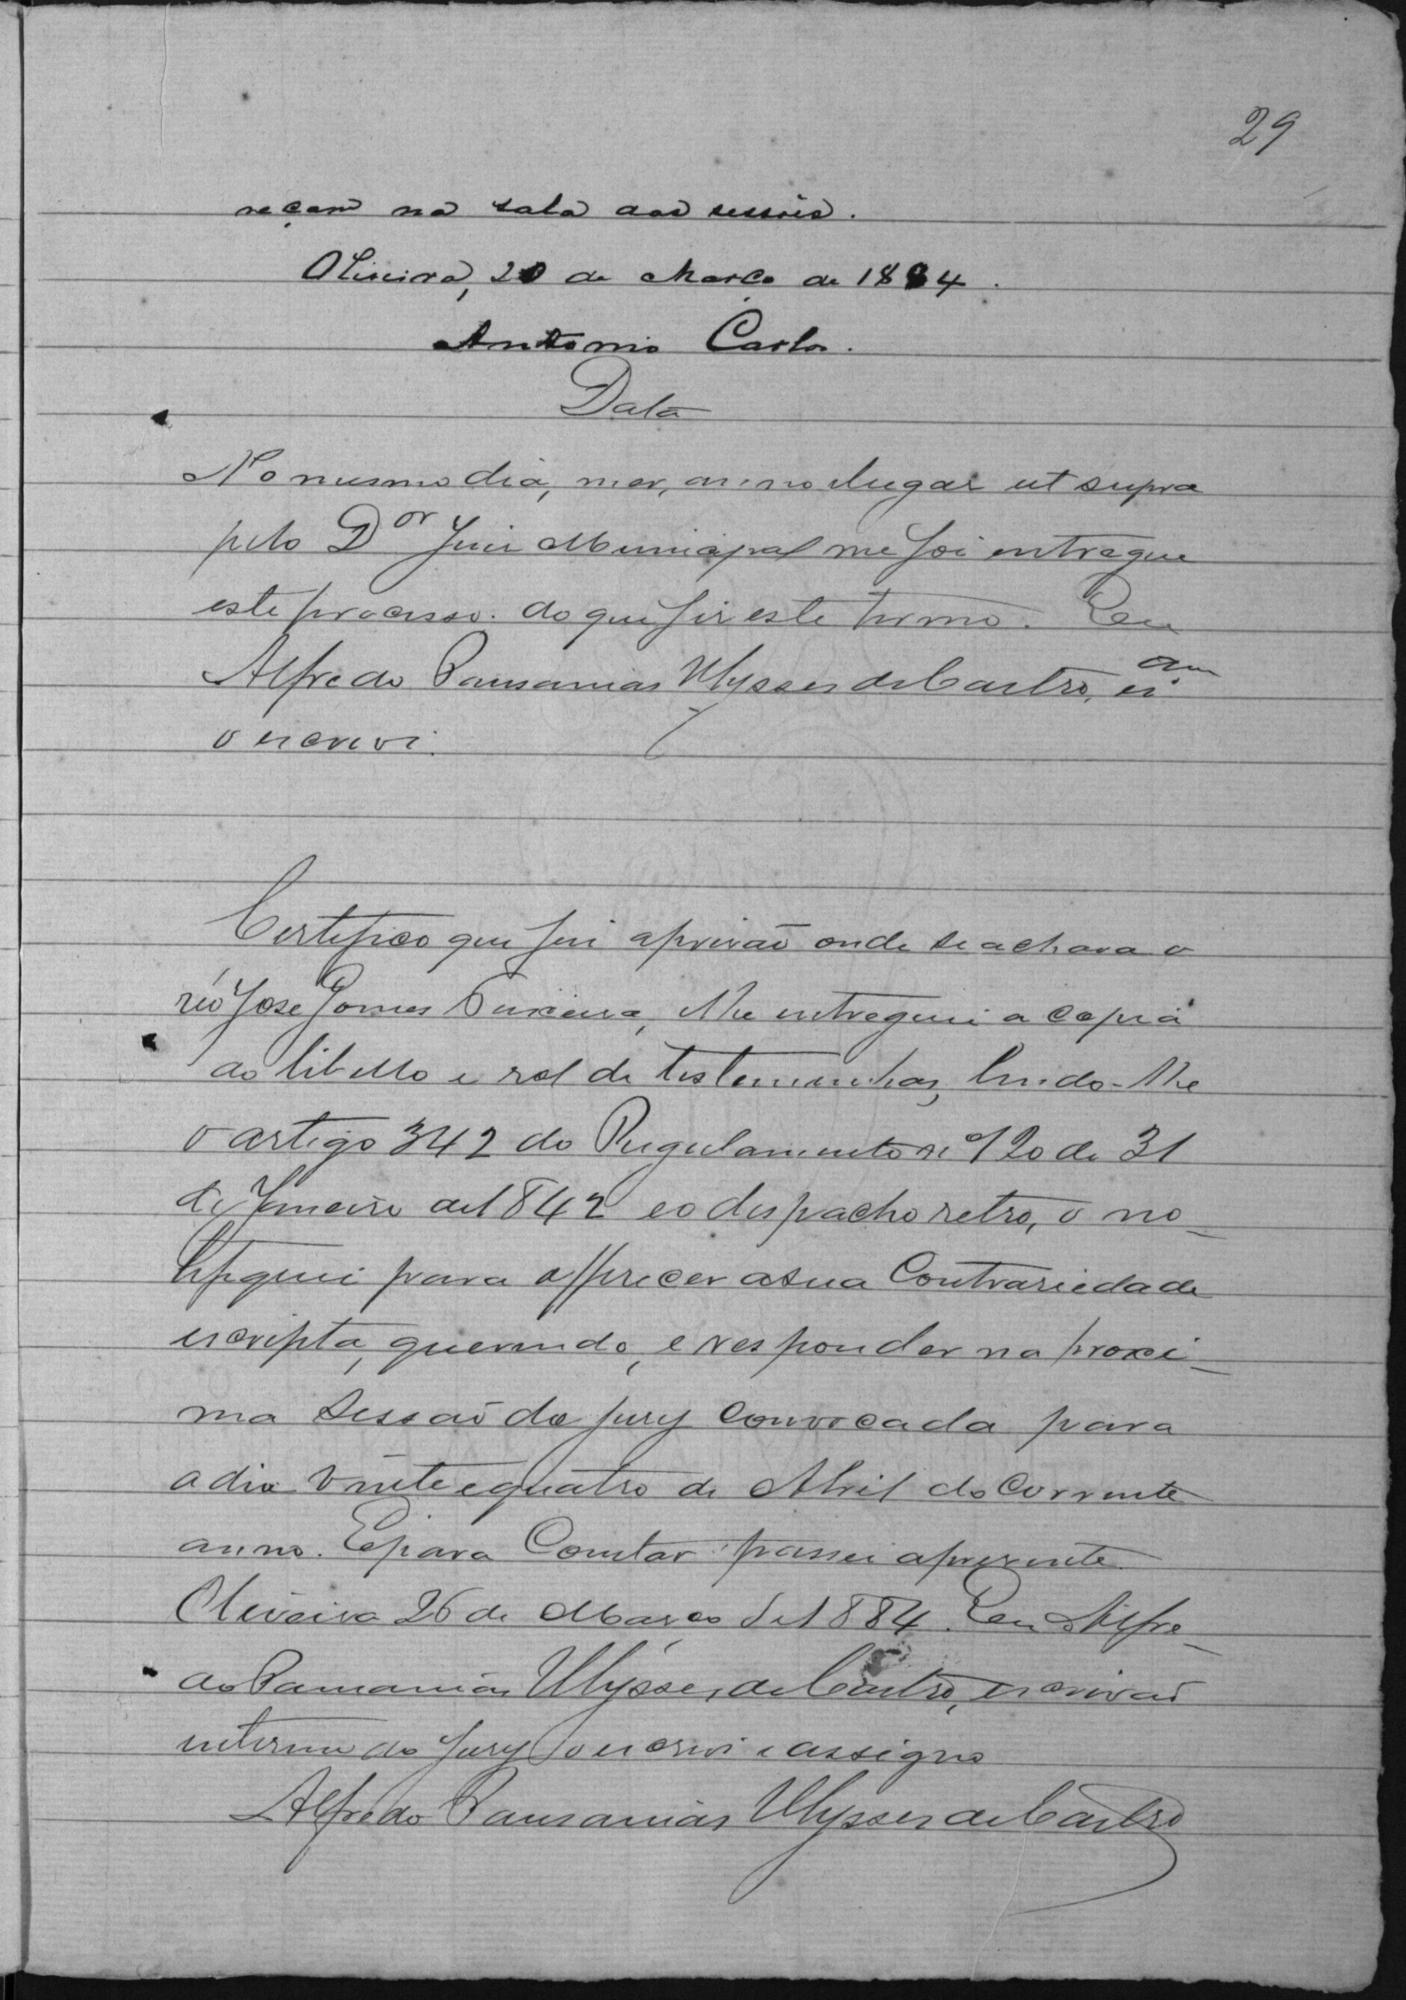 29
reçam na sala das sessões.
Oliveira, 20 de Março de 1884.
Antonio Carlos.
Data
No mesmo dia, mez, anno e lugar ut supra
pelo Dor Juiz Municipal me foi entregue
este processo. do que fiz este termo. Eu
Alfredo Pausanias Ulysses de Castro, es.am
o escrevi.
Certifico que fui a prisão onde se achava o
réo José Gomes Teixeira, lhe entreguei a copia
do libello e rol de testemunhas, lendo-lhe
o artigo 342 do Regulamento nº 120 de 31
de Janeiro de 1842 e o despacho retro, o no-
tifiquei para offerecer a sua Contrariedade
escripta, querendo, e responder na proxi-
ma sessão do jury convocada para
a dia vinte e quatro de Abril do corrente
anno. E para Constar passei a presente.
Oliveira 26 de Março de 1884. Eu Alfre-
do Pausanias Ulysses de Castro, escrivão
interino do Jury o escrevi e assigno
Alfredo Pausanias Ulysses de Castro